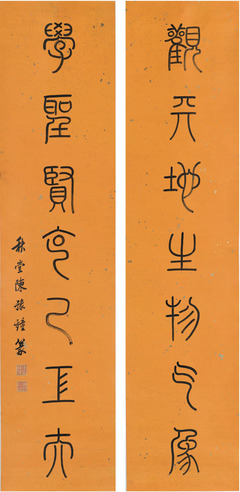 觀天地生物气象
學聖賢克己工夫
秋堂陳豫鍾篆